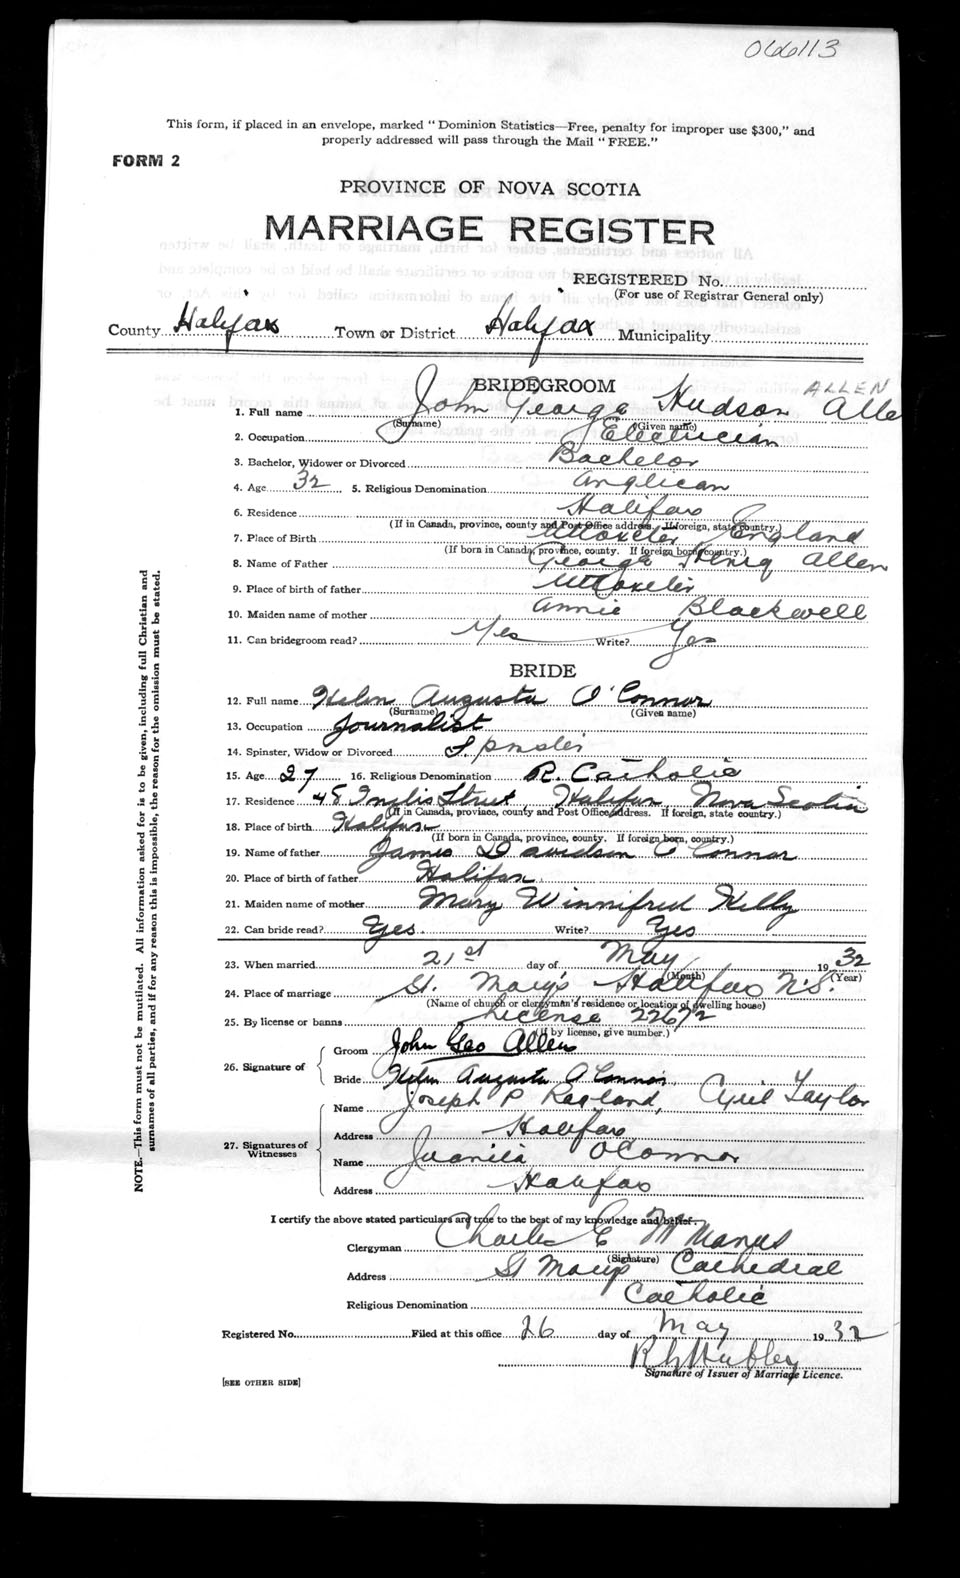 066113
This form, if placed in an envelope, marked "Dominion Statistics—Free, penalty for improper use $300," and
properly addressed will pass through the Mail "FREE."
FORM 2
PROVINCE OF NOVA SCOTIA
MARRIAGE REGISTER
REGISTERED No.
(For use of Registrar General only)
County Halifax Town or District Halifax Municipality
BRIDEGROOM ALLEN
1. Full name John George Hudson Alle
(Surname) (Given name)
2. Occupation Electrician
3. Bachelor, Widower or Divorced Bachelor
4. Age 32 5. Religious Denomination Anglican
6. Residence Halifax
(If in Canada, province, county and Post Office address. If foreign, state country.)
7. Place of Birth Uttoxeter England
(If born in Canada, province, county. If foreign born, country.)
8. Name of Father George Henry Allen
9. Place of birth of father Uttoxeter
10. Maiden name of mother Annie Blackwell
11. Can bridegroom read? Yes Write? Yes
BRIDE
12. Full name Helen Augusta O'Connor
(Surname) (Given name)
13. Occupation Journalist
14. Spinster, Widow or Divorced Spinster
15. Age 27 16. Religious Denomination R. Catholic
17. Residence 48 Inglis Street, Halifax Nova Scotia
(If in Canada, province, county and Post Office address. If foreign, state country.)
18. Place of birth Halifax
(If born in Canada, province, county. If foreign born, country.)
19. Name of father James Davidson O'Connor
20. Place of birth of father Halifax
21. Maiden name of mother Mary Winnifred Kelly
22. Can bride read? Yes. Write? Yes
23. When married 21st day of May 1932
(Month) (Year)
24. Place of marriage St. Mary's Halifax N.S.
(Name of church or clergyman's residence or location of dwelling house)
25. By license or banns License 22672
(If by license, give number.)
26. Signature of
Groom John Geo Allen
Bride Helen Augusta O'Connor
27. Signatures of Witnesses
Name Joseph P Ragland, Cyril Taylor
Address Halifax
Name Juanita O'Connor
Address Halifax
I certify the above stated particulars are true to the best of my knowledge and belief.
Clergyman Charles E McManus
(Signature)
Address St Marys Cathedral
Religious Denomination Catholic
Registered No. Filed at this office 26 day of May 1932
Signature of Issuer of Marriage Licence.
[SEE OTHER SIDE]
NOTE.—This form must not be mutilated. All information asked for is to be given, including full Christian and
surnames of all parties, and if for any reason this is impossible, the reason for the omission must be stated.